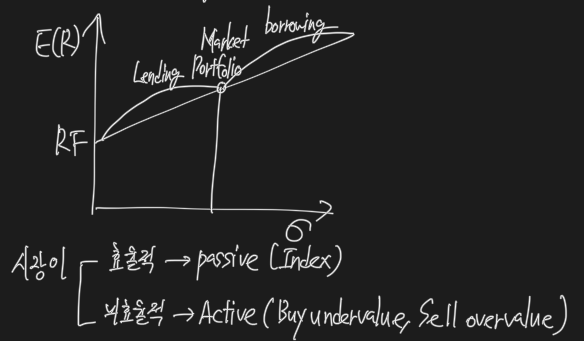 E(R)
Market
borrowing
Lending
Portfolio
RF
σ
시장이
효율적 → passive (Index)
비효율적 → Active (Buy undervalue, Sell overvalue)